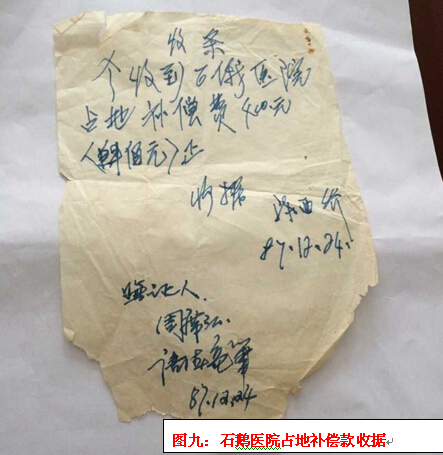 收条
今收到石鹅医院
占地补偿费400元
(肆佰元)正
收据
87.12.24.
证人
87.12.24
图九：石鹅医院占地补偿款收据